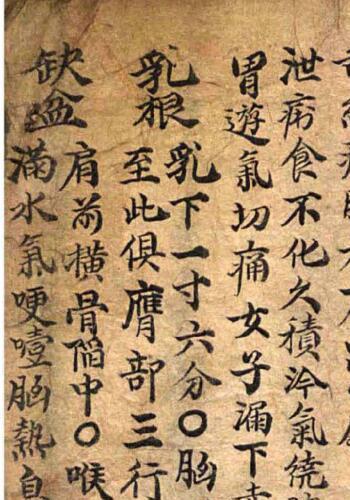 泄痢食不化久積冷氣繞
胃遊氣切痛女子漏下赤
乳根
乳下一寸六分〇胸
至此俱膺部三行
缺盆
肩前横骨陷中〇喉
滿水氣哽噎胸熱息